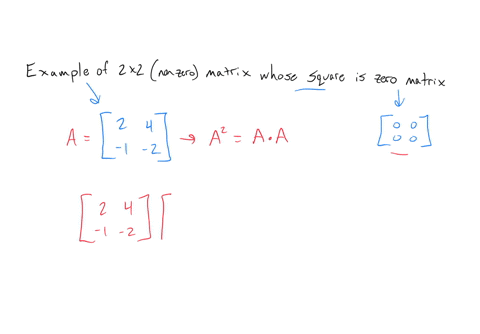 Example of 2x2 (nonzero) matrix whose square is zero matrix
A = [2 4 -1 -2] → A² = A · A [0 0 0 0]
[2 4 -1 -2] [